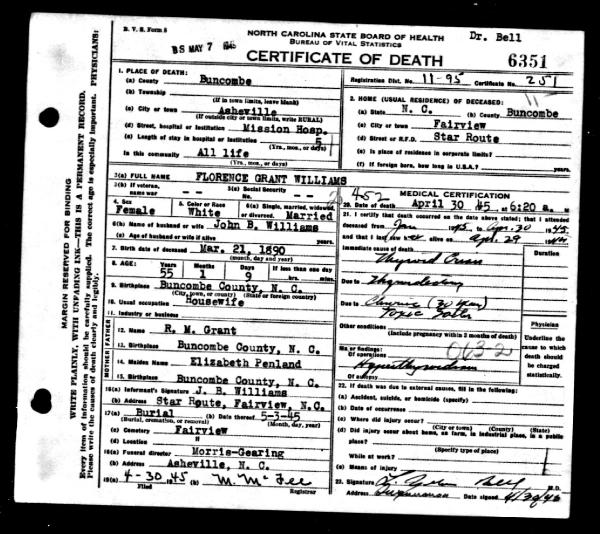 B. V. S. Form 8
NORTH CAROLINA STATE BOARD OF HEALTH
BUREAU OF VITAL STATISTICS
Dr. Bell
BS MAY 7 1945
CERTIFICATE OF DEATH
6351
Registration Dist. No. 11-95 Certificate No. 251
1. PLACE OF DEATH:
(a) County Buncombe
(b) Township
(If in town limits, leave blank)
(c) City or town Asheville
(If outside city or town limits, write RURAL)
(d) Street, hospital or institution Mission Hosp.
(e) Length of stay in hospital or institution 5
(Yrs., mos., or days)
In this community All life
(Yrs., mos., or days)
2. HOME (USUAL RESIDENCE) OF DECEASED:
(a) State N. C. (b) County Buncombe
(c) City or town Fairview
(d) Street or R.F.D. Star Route
(e) Is place of residence in corporate limits?
(f) If foreign born, how long in U.S.A.?
3(a) FULL NAME FLORENCE GRANT WILLIAMS
3(b) If veteran, name war -- --
3(c) Social Security No. -- --
4. Sex Female
5. Color or Race White
6(a) Single, married, widowed, or divorced. Married
6(b) Name of husband or wife John B. Williams
6(c) Age of husband or wife if alive years.
7. Birth date of deceased Mar. 21, 1890
(month, day and year)
8. AGE: Years 55 Months 1 Days 9 If less than one day
hrs. min.
9. Birthplace Buncombe County, N. C.
(City, town, or county) (State or foreign country)
10. Usual occupation Housewife
11. Industry or business
FATHER
12. Name R. M. Grant
13. Birthplace Buncombe County, N. C.
MOTHER
14. Maiden Name Elizabeth Penland
15. Birthplace Buncombe County, N. C.
16(a) Informant's Signature J. B. Williams
(b) Address Star Route, Fairview, N.C.
17(a) Burial (b) Date thereof 5-3-45
(Burial, cremation, or removal) (Month, day, year)
(c) Cemetery Fairview
(d) Location "
18(a) Funeral director Morris-Gearing
(b) Address Asheville, N. C.
19(a) 4-30 1945 (b) M. McFee
Filed Registrar
452
MEDICAL CERTIFICATION
20. Date of death April 30 45 at 6:20 a. M
21. I certify that death occurred on the date above stated; that I attended
deceased from Jan 1945 to Apr. 30 1945
and that I last saw her alive on Apr. 29 19
Immediate cause of death
Duration
Thyroid Crisis
Due to
Due to Chronic (30 year)
Toxic
Other conditions
(Include pregnancy within 3 months of death)
Physician
Underline the cause to which death should be charged statistically.
Major findings:
Of operations
063-2
Of autopsy
22. If death was due to external causes, fill in the following:
(a) Accident, suicide, or homicide (specify)
(b) Date of occurrence
(c) Where did injury occur?
(City or town) (County) (State)
(d) Did injury occur about home, on farm, in industrial place, in a public
place?
(Specify type of place)
While at work?
(e) Means of injury
23. Signature Bell M.D.
Address Date signed 4/30/45
MARGIN RESERVED FOR BINDING
WRITE PLAINLY, WITH UNFADING INK—THIS IS A PERMANENT RECORD.
Every item of information should be carefully supplied. The correct age is especially important. PHYSICIANS:
Please write the causes of death clearly and legibly.